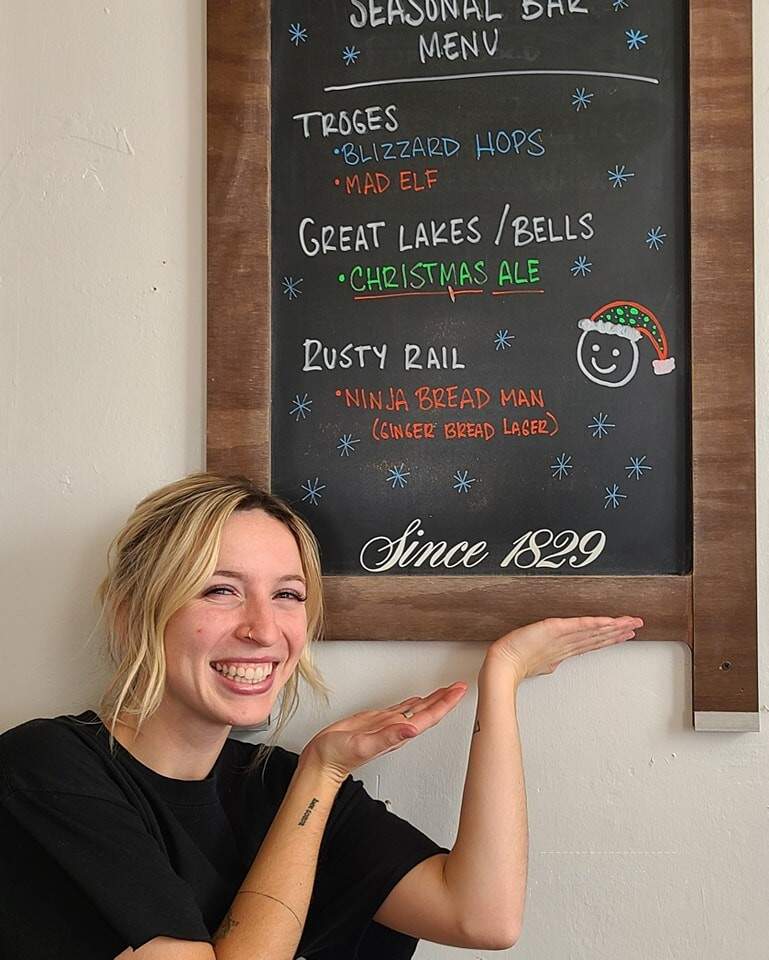 SEASONAL BAR
MENU
TROGES
•BLIZZARD HOPS
•MAD ELF
GREAT LAKES / BELLS
•CHRISTMAS ALE
RUSTY RAIL
•NINJA BREAD MAN
(GINGER BREAD LAGER)
Since 1829